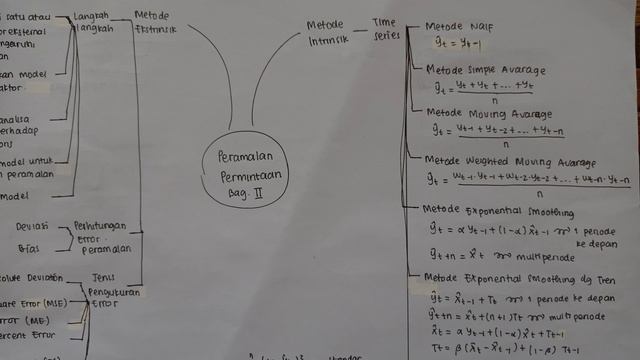 satu atau
eksternal
Langkah
langkah
model
analisa
model untuk
peramalan
model
Metode
Ekstrinsik
Deviasi
Bias
Perhitungan
Error
peramalan
Deviation
Error (MSE)
(ME)
Percent Error
Jenis
Pengukuran
Error
Peramalan
Permintaan
Bag. II
Metode
Intrinsik
Time
series
Metode Naif
ŷt = yt-1
Metode Simple Avarage
ŷt = yt + yt + ... + yt
n
Metode Moving Avarage
ŷt = yt-1 + yt-2 + ... + yt-n
n
Metode Weighted Moving Avarage
ŷt = wt-1 . yt-1 + wt-2 . yt-2 + ... + wt-n . yt-n
n
Metode Exponential Smoothing
ŷt = α yt-1 + (1-α) x̂t-1 1 periode
ke depan
ŷt+n = x̂t multi periode
Metode Exponential Smoothing dg Tren
ŷt = x̂t-1 + Tt 1 periode ke depan
ŷt+n = x̂t + (n+1)Tt multi periode
x̂t = α yt-1 + (1-α) x̂t + Tt-1
Tt = β (x̂t - x̂t-1) + (1-β) Tt-1